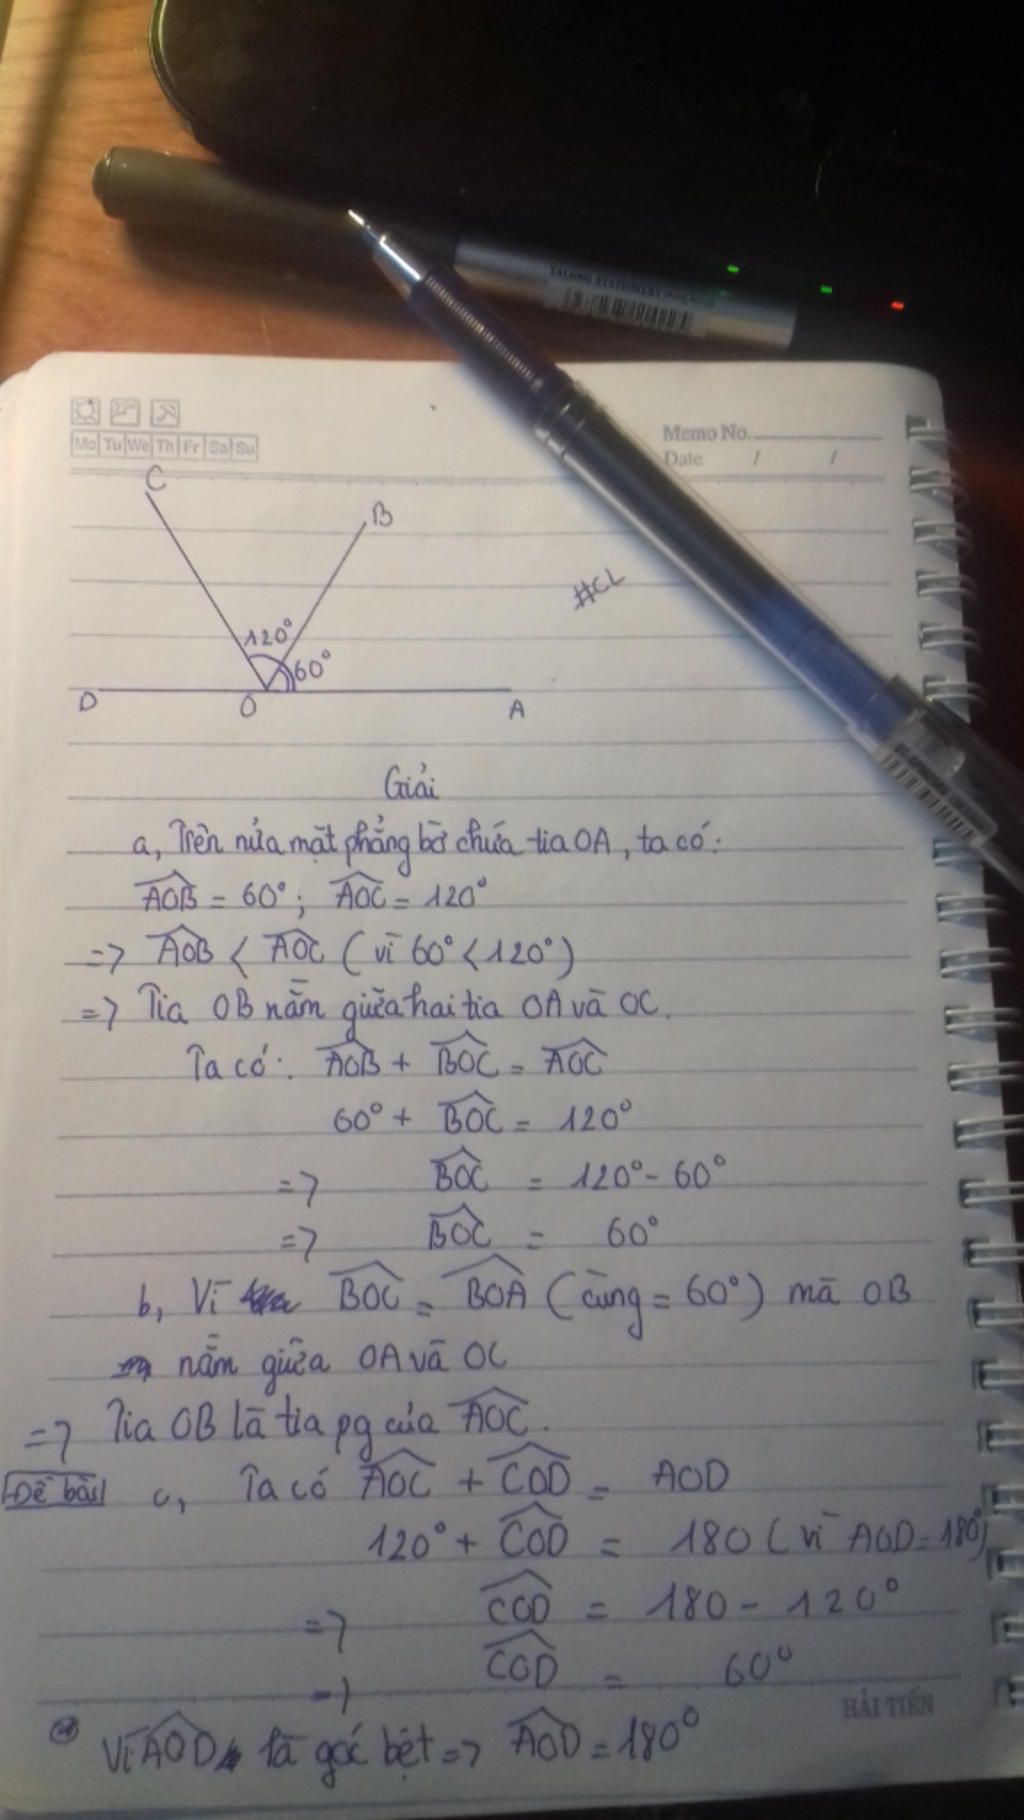 YALONG STATIONERY
Mo Tu We Th Fr Sa Su
Memo No.
Date / /
C
B
#CL
120°
60°
D O A
Giải
a, Trên nửa mặt phẳng bờ chứa tia OA, ta có:
AOB = 60°; AOC = 120°
=> AOB < AOC (vì 60° < 120°)
=> Tia OB nằm giữa hai tia OA và OC.
Ta có: AOB + BOC = AOC
60° + BOC = 120°
=> BOC = 120° - 60°
=> BOC = 60°
b, Vì BOC = BOA (cùng = 60°) mà OB
nằm giữa OA và OC
=> Tia OB là tia pg của AOC.
Đề bài c, Ta có AOC + COD = AOD
120° + COD = 180 (vì AOD = 180°)
=> COD = 180 - 120°
=> COD = 60°
HẢI TIẾN
Vì AOD là góc bẹt => AOD = 180°